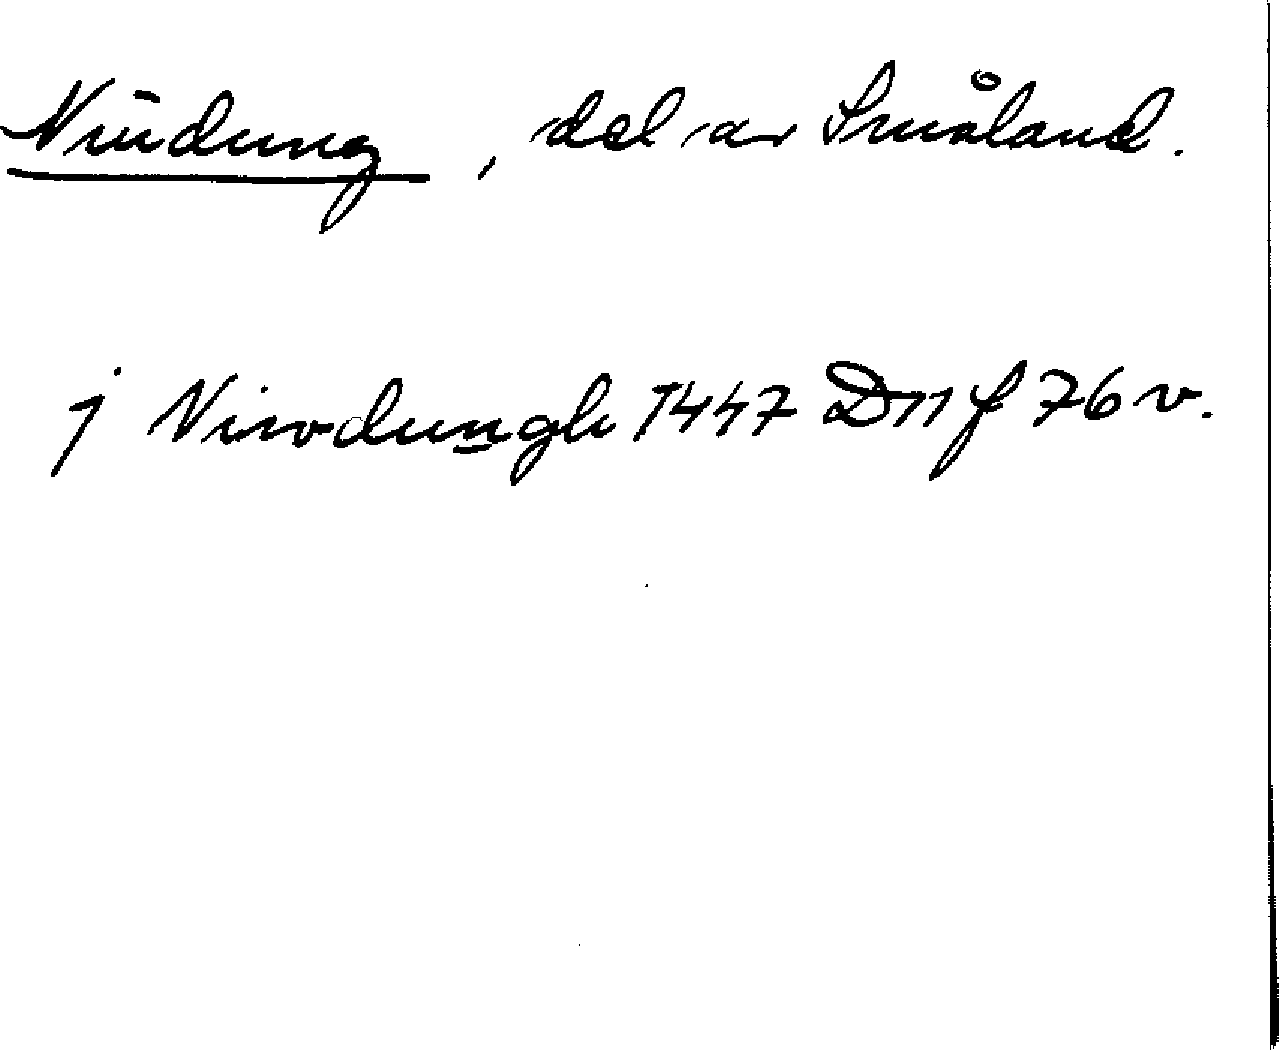 Niudung, del av Småland.
j Niwdungh 1447 D 11 f 76 v.